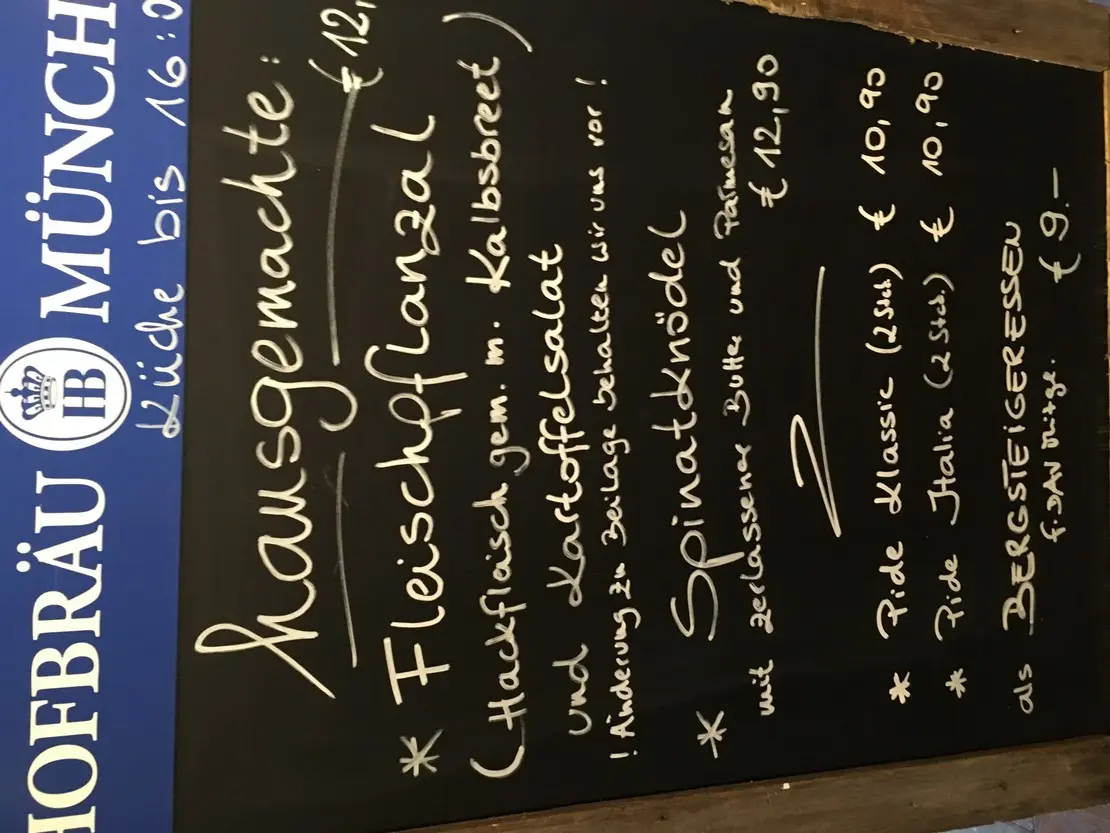 HOFBRÄU HB MÜNCH
Küche bis 16:0
hausgemachte:
€ 12,
* Fleischpflanzal
(Hackflaisch gem. m. Kalbsbreet)
und Kartoffelsalat
! Änderung zu Beilage behalten wir uns vor!
* Spinatknödel
mit zerlassener Butter und Parmesan
€ 12,90
* Pide Klassic (2 Stck.) € 10,90
* Pide Italia (2 Stck.) € 10,90
als BERGSTEIGERESSEN
f. DAV Mitgl. € 9.-